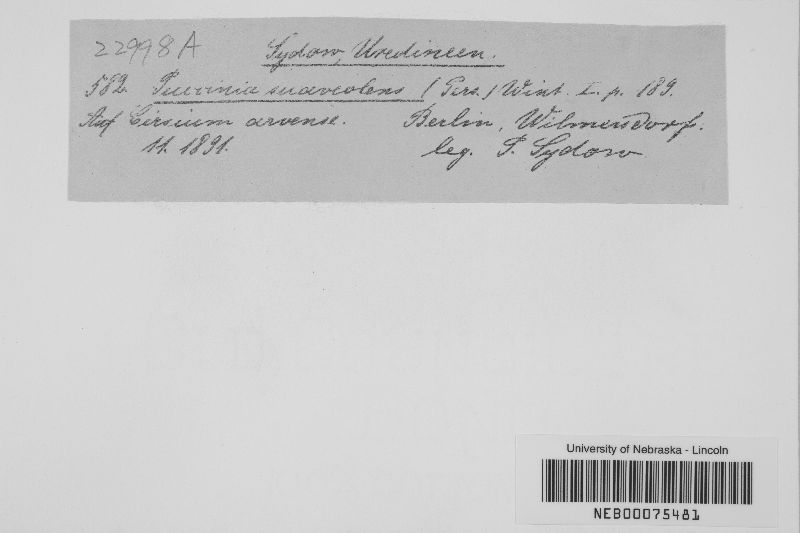 22998A Sydow, Uredineen.
582. Puccinia suaveolens (Pers.) Wint. I. p. 189.
Auf Cirsium arvense. Berlin, Wilmersdorf.
11. 1891. leg. P. Sydow
University of Nebraska - Lincoln
NEB00075481